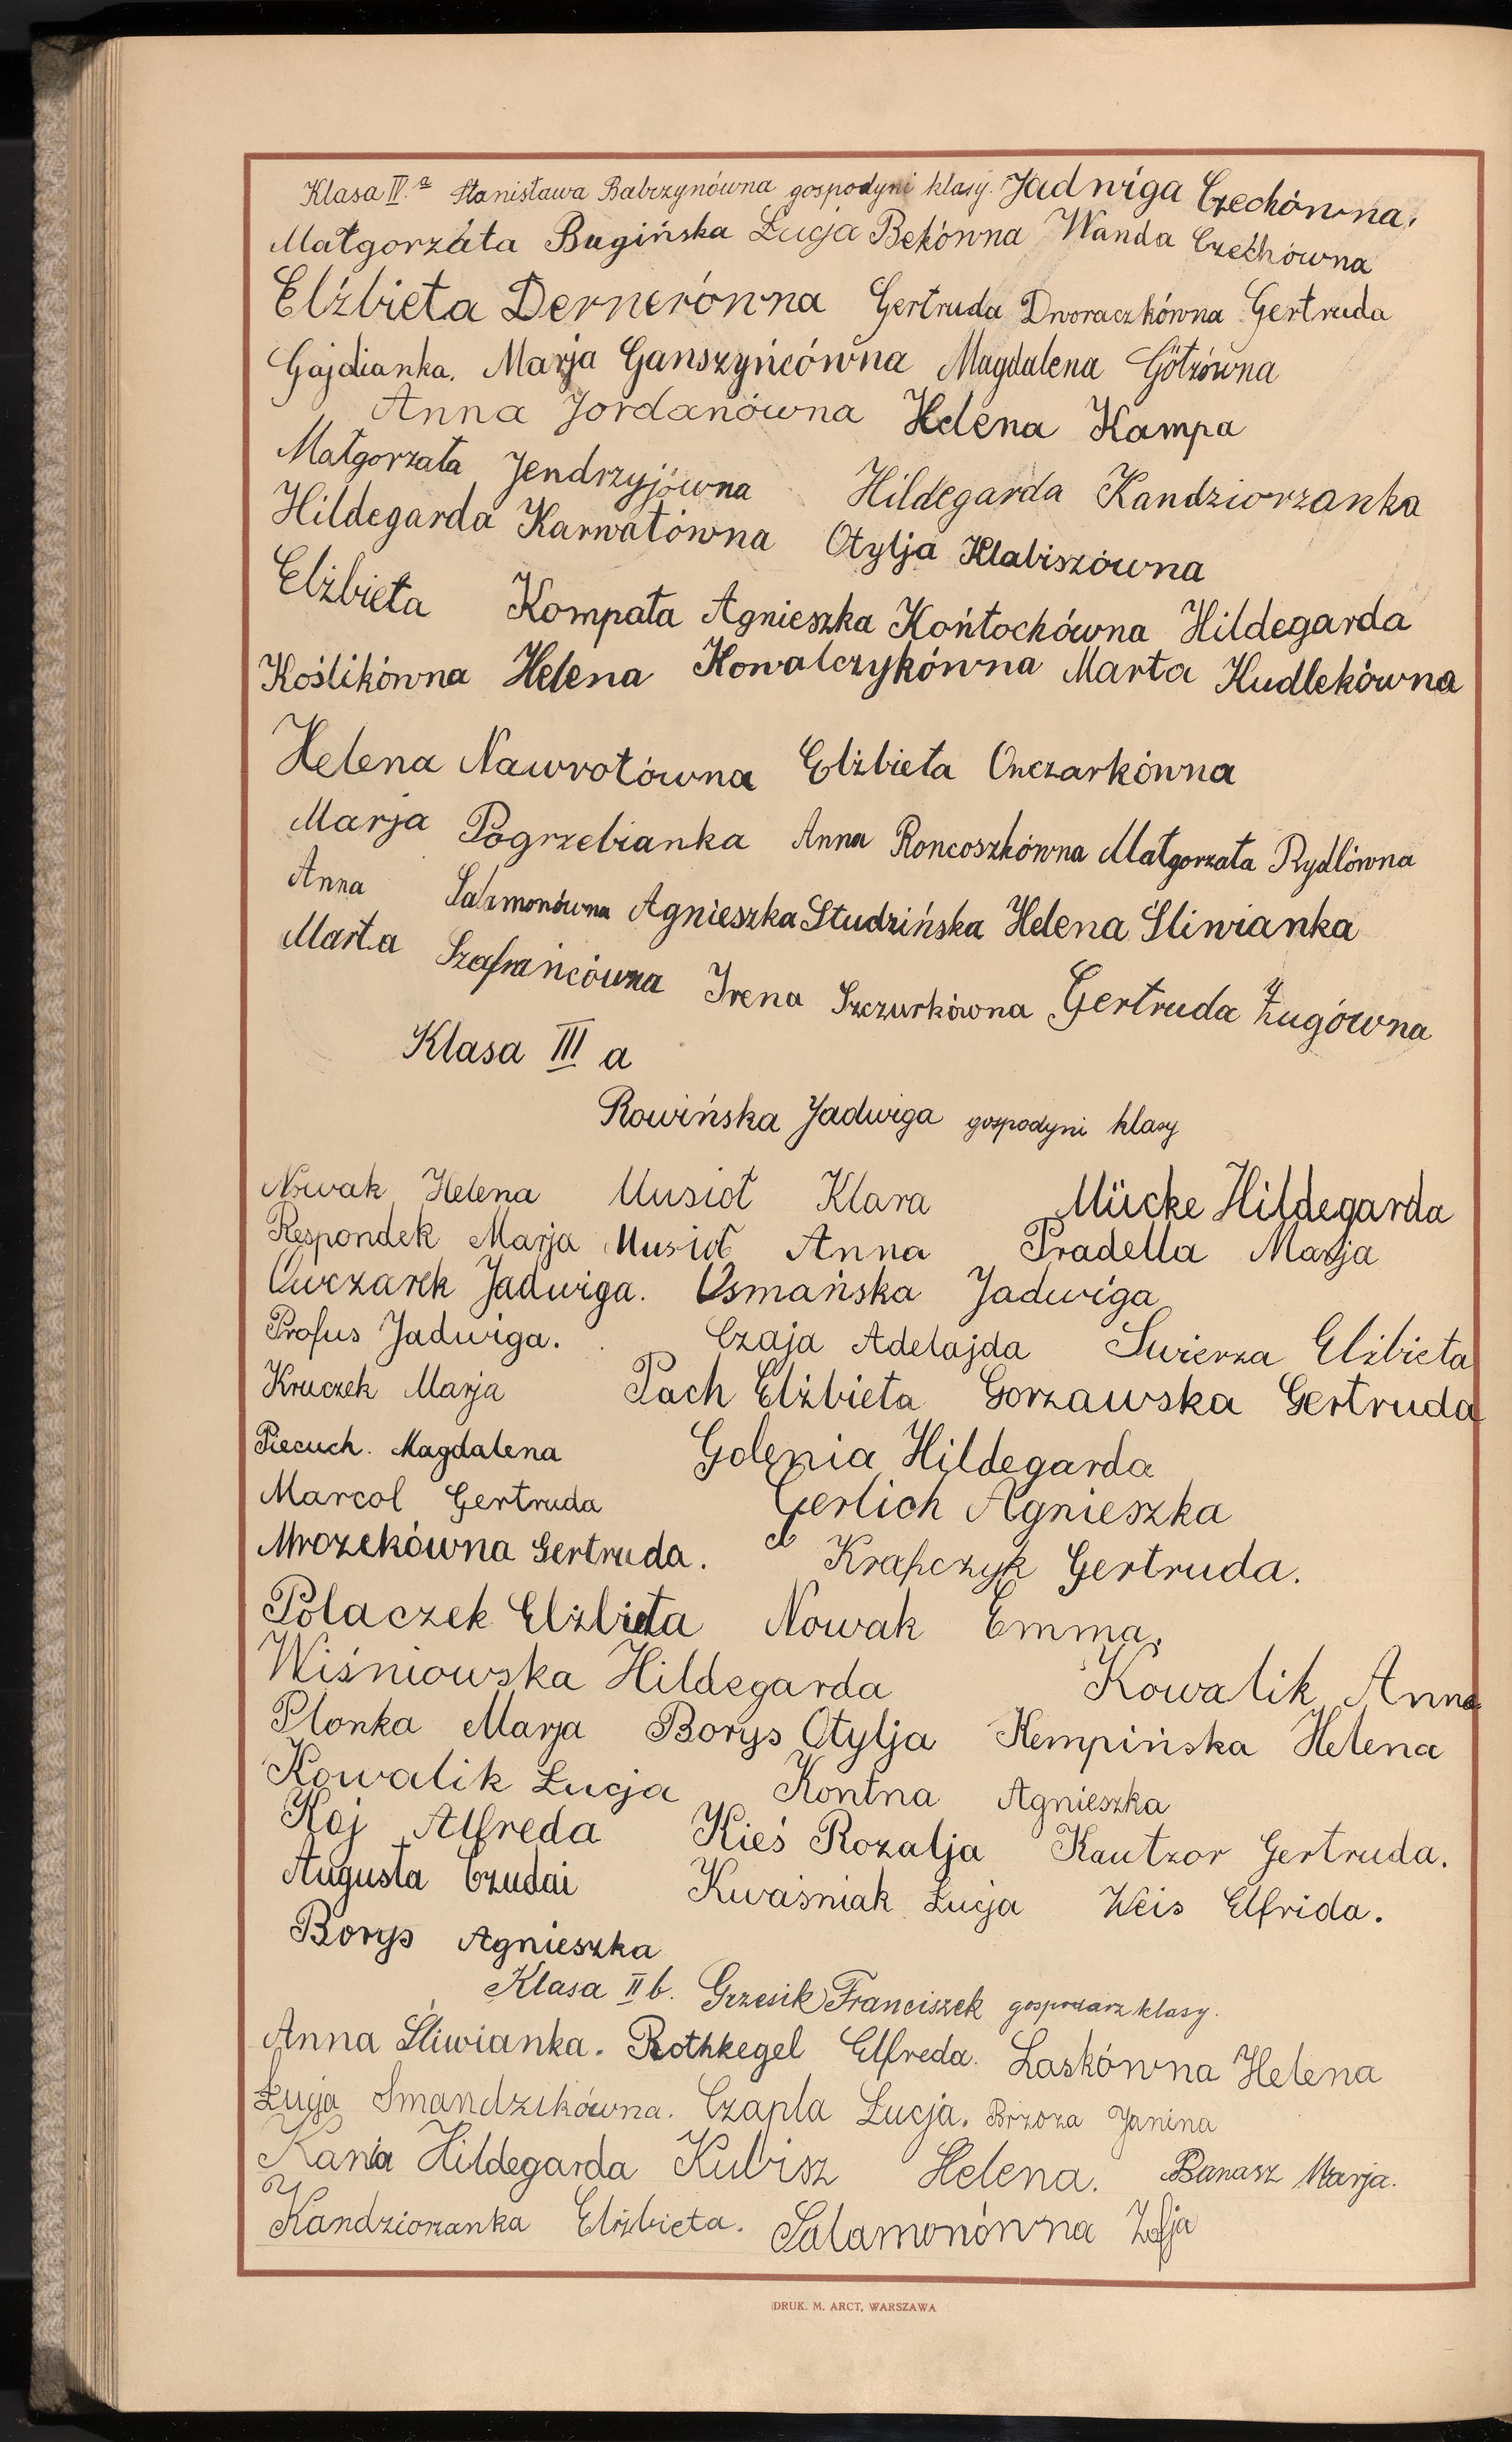 Klasa IV. a Stanisława Babrzynówna gospodyni klasy. Jadwiga Czechówna,
Małgorzáta Bugińska Łucja Bekówna Wanda Czechówna
Elżbieta Dernerówna Gertruda Dworaczkówna Gertruda
Gajdianka. Marja Ganszyńcówna Magdalena Götzówna
Anna Jordanówna Helena Kampa
Małgorzata Jendrzyjówna Hildegarda Kandziorzanka
Hildegarda Karwatówna Otylja Klabiszówna
Elżbieta Kompała Agnieszka Końtochówna Hildegarda
Koślikówna Helena Kowalczykówna Marta Kudlekówna
Helena Nawrotówna Elżbieta Owczarkówna
Marja Pogrzebianka Anna Roncoszkówna Małgorzata Rydlówna
Anna Salamonówna Agnieszka Studzińska Helena Śliwianka
Marta Szafrańcówna Irena Szczurkówna Gertruda Żugówna
Klasa III a
Rowińska Jadwiga gospodyni klasy
Nowak Helena Musioł Klara Mücke Hildegarda
Respondek Marja Musioł Anna Pradella Marja
Owczarek Jadwiga. Osmańska Jadwiga
Profus Jadwiga. Czaja Adelajda Świerza Elżbieta
Kruczek Marja Pach Elżbieta Gorzawska Gertruda
Piecuch. Magdalena Golenia Hildegarda
Marcol Gertruda Gerlich Agnieszka
Mrozekówna Gertruda. Krapczyk Gertruda.
Polaczek Elżbieta Nowak Emma.
Wiśniowska Hildegarda Kowalik Anna
Plonka Marja Borys Otylja Kempińska Helena
Kowalik Łucja Kontna Agnieszka
Koj Alfreda Kieś Rozalja Kautzor Gertruda.
Augusta Czudai Kwaśniak Łucja Weis Elfrida.
Borys Agnieszka
Klasa II b. Grzesik Franciszek gospodarz klasy.
Anna Śliwianka. Rothkegel Elfreda. Laskówna Helena
Łucja Smandzikówna. Czapla Łucja. Brzoza Janina
Kania Hildegarda Kubisz Helena. Banasz Marja.
Kandziorzanka Elżbieta. Salamonówna Zofja
DRUK. M. ARCT, WARSZAWA